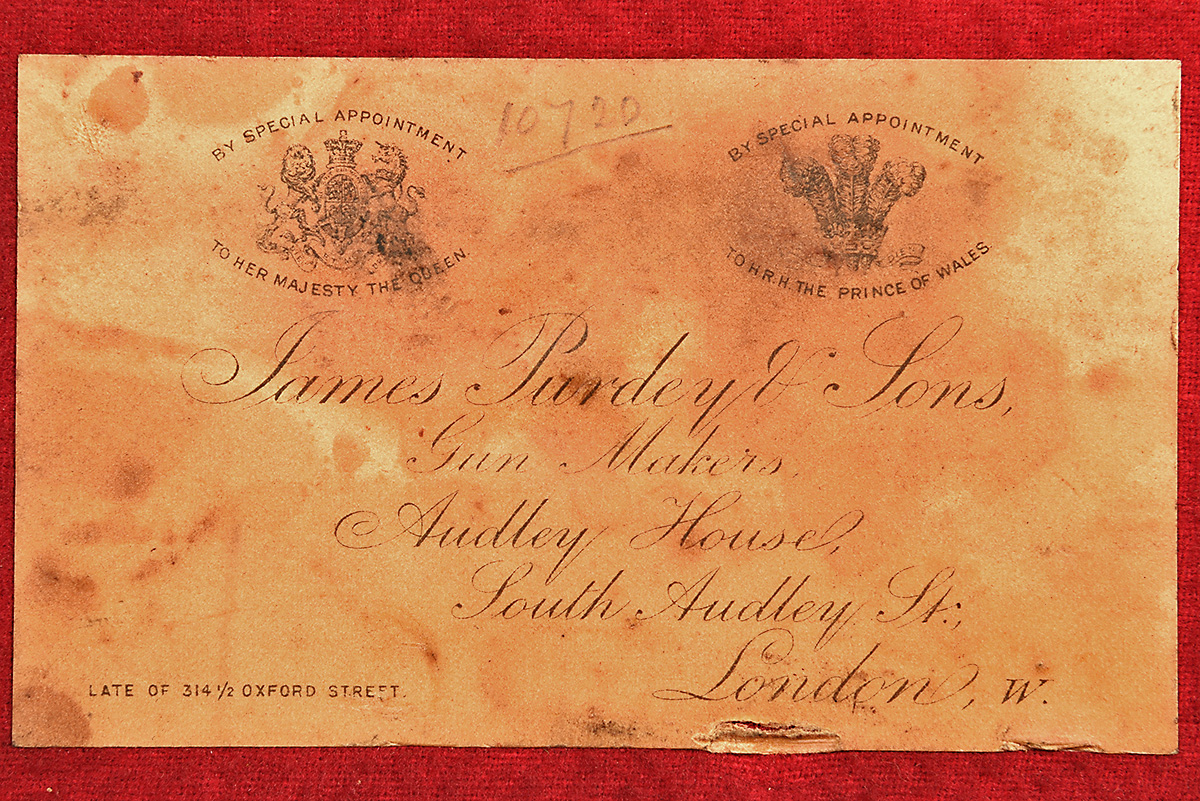 10720
BY SPECIAL APPOINTMENT
TO HER MAJESTY THE QUEEN
BY SPECIAL APPOINTMENT
TO H.R.H. THE PRINCE OF WALES.
James Purdey & Sons,
Gun Makers,
Audley House,
South Audley St.,
London, W.
LATE OF 314½ OXFORD STREET.